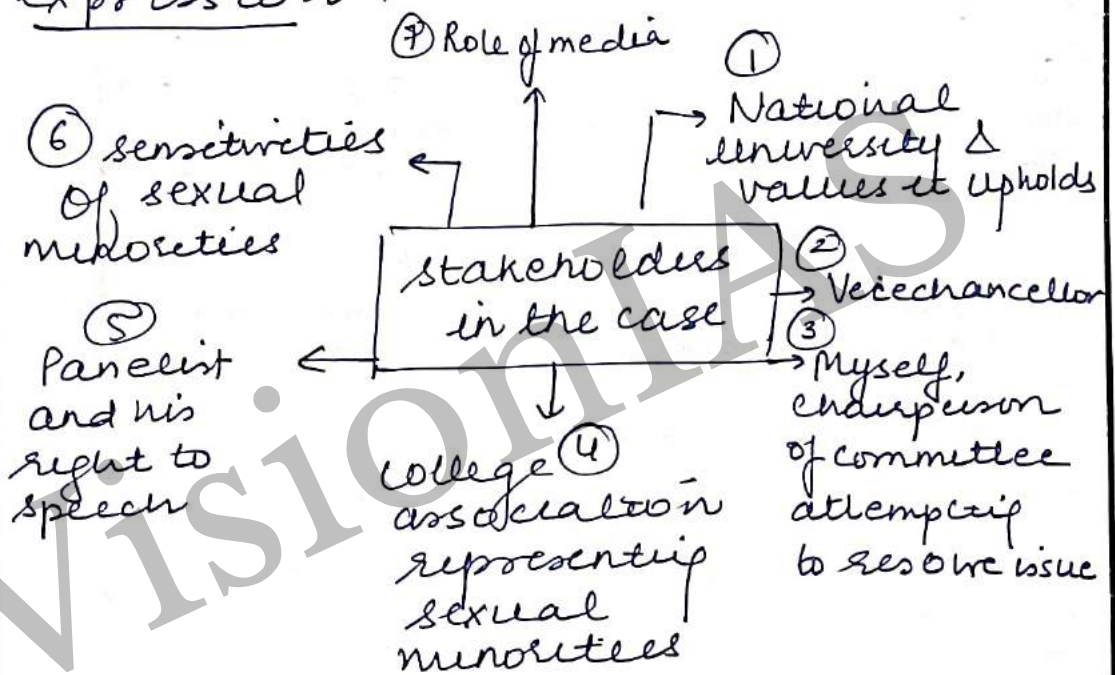 expression
⑦ Role of media
①
National
university &
values it upholds
⑥ sensitivities
of sexual
minorities
stakeholders
in the case
②
Vicechancellor
③
Myself,
chairperson
of committee
attempting
to resolve issue
⑤
Panelist
and his
right to
speech
college ④
association
representing
sexual
minorities
VisionIAS